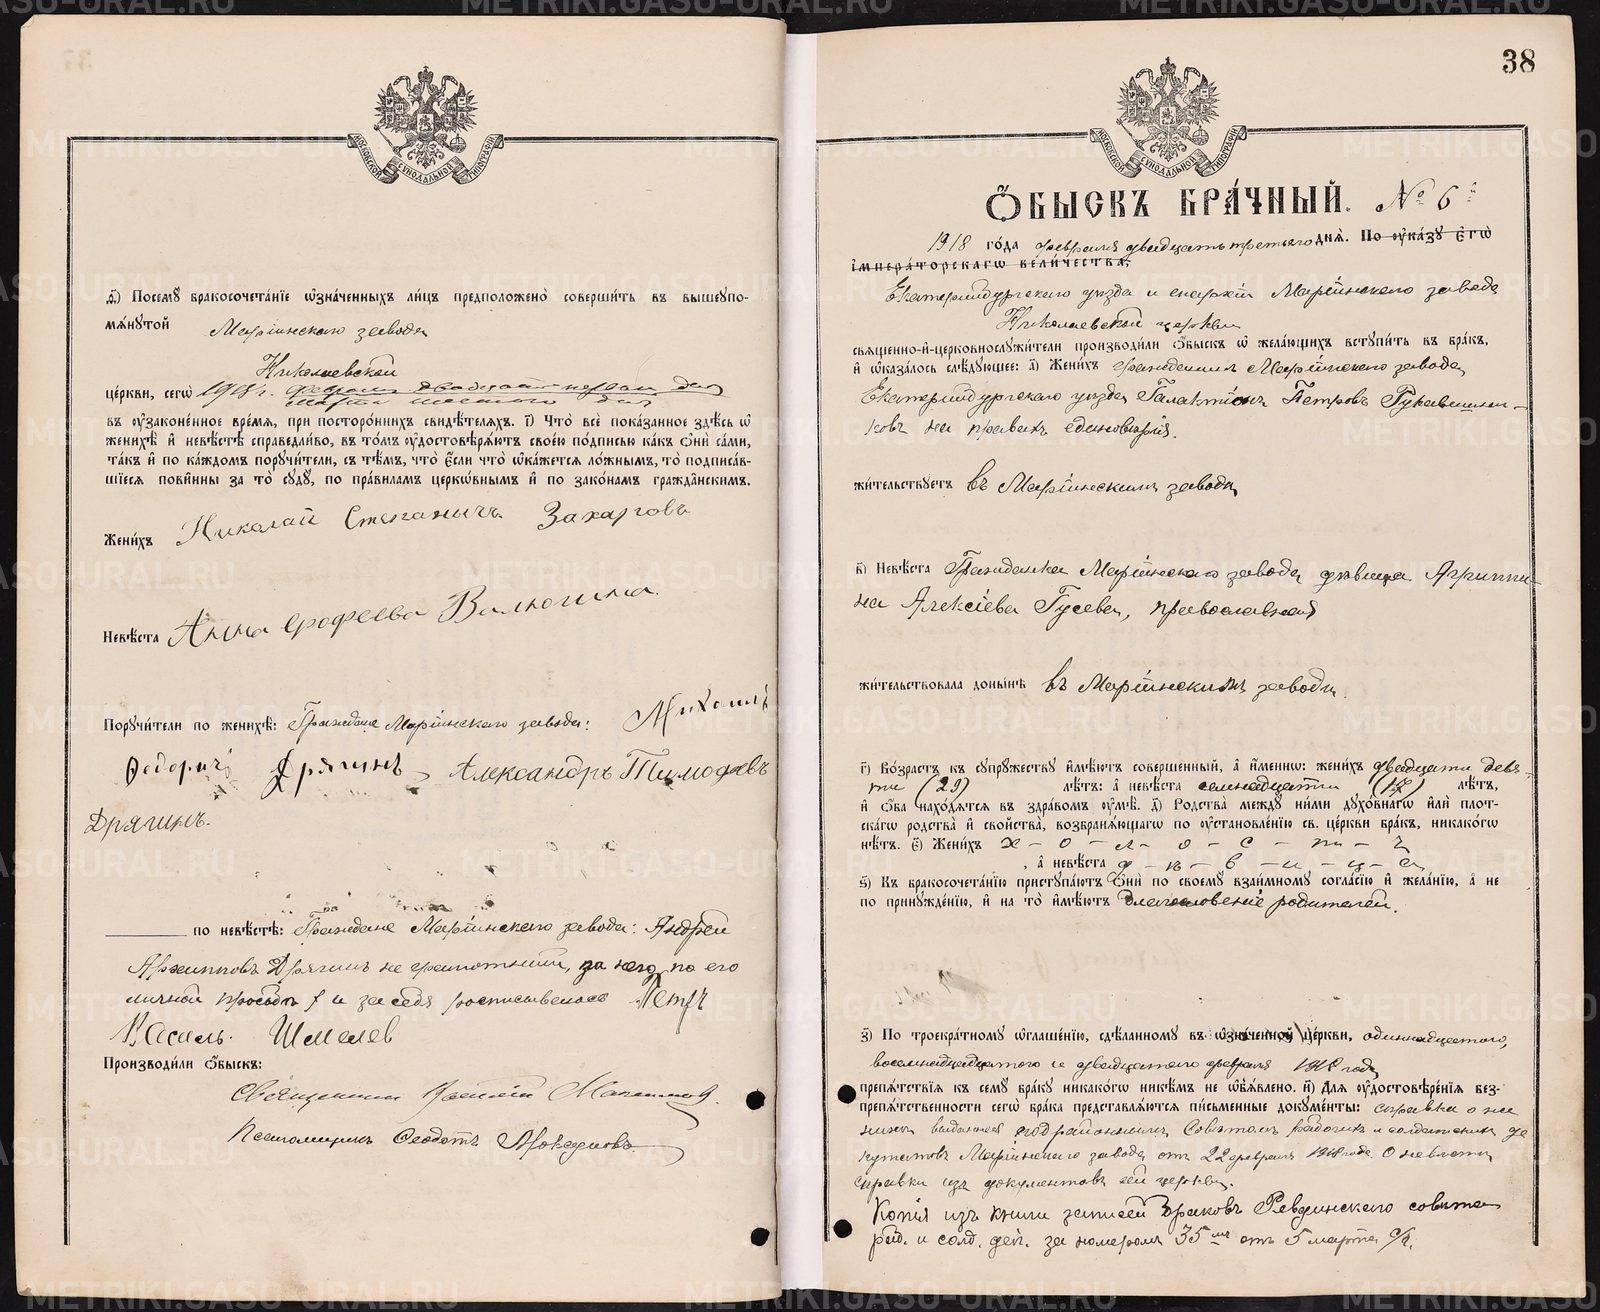 МОСКОВСКОЙ СѴНОДАЛЬНОЙ ТИПОГРАФІИ
д҃) Посемꙋ бракосочета́нїе ѡ҆зна́ченныхъ ли́цъ предположено̀ соверши́ть въ вышеупо-
мѧ́нꙋтой Маріинскаго завода
Николаевской
це́ркви, сегѡ̀ 1918 г. февраля двадцать перваго дня
марта шестого дня
въ ᲂу҆зако́ненное вре́мѧ, при посторо́ннихъ свидѣ́телѧхъ. і҃) Что̀ всѐ пока́занное здѣ́сь ѡ҆
женихѣ̀ и҆ невѣ́стѣ справедли́во, въ то́мъ ᲂу҆достовѣрѧ́ютъ свое́ю по́дписью ка́къ ѻ҆нѝ са́ми,
та́къ и҆ по ка́ждомъ порꙋчи́тели, съ тѣ́мъ, что̀ є҆́сли что̀ ѡ҆ка́жетсѧ ло́жнымъ, то̀ подписа́в-
шїесѧ пови́нны за то̀ сꙋдꙋ̀, по пра́виламъ церко́внымъ и҆ по зако́намъ гражда́нскимъ.
Жени́хъ Николай Степаничъ Захаровъ
Невѣ́ста Анна ерофеева Валюгина.
Порꙋчи́тели по женихѣ̀: Граждане Маріинскаго завода: Михаилъ
Федоричъ Дрягинъ, Александръ Тимофеевъ
Дрягинъ.
по невѣ́стѣ: Граждане Маріинскаго завода: Андрей
Архиповъ Дрягинъ не грамотный, за него по его
личной просьбѣ и за себя росписывалась Петръ
Васаль. Шмелев
Производи́ли ѻ҆́быскъ:
Священникъ Василій Максимовъ.
Псаломщикъ Феодотъ
38
МОСКОВСКОЙ СѴНОДАЛЬНОЙ ТИПОГРАФІИ
Ѻ҆́БЫСКЪ БРА́ЧНЫЙ. № 6й
1918 го́да февраля двадцать третьяго днѧ̀. По ᲂу҆ка́зꙋ є҆гѡ̀
і҆мпера́торскагѡ вели́чества,
Екатеринбургскаго уѣзда и епархіи Маріинскаго завода
Николаевской церкви
свѧще́нно-и҆-церковнослꙋжи́тели производи́ли ѻ҆́быскъ ѡ҆ жела́ющихъ встꙋпи́ть въ бра́къ,
и҆ ѡ҆каза́лось слѣ́дꙋющее: а҃) Жени́хъ гражданинъ Маріинскаго завода,
Екатеринбургскаго уѣзда Галактіонъ Петровъ Рукавишни-
ковъ на правахъ единовѣрія.
жи́тельствꙋетъ въ Маріинскимъ заводѣ
в҃) Невѣ́ста Гражданка Маріинскаго завода дѣвица Агриппи-
на Алексіева Гусева, православная
жи́тельствовала доны́нѣ въ Маріинскимъ заводѣ.
г҃) Во́зрастъ къ сꙋпрꙋ́жествꙋ и҆мѣ́ютъ соверше́нный, а҆ и҆́менно: жени́хъ двадцати девя-
ти (29) лѣ́тъ: а҆ невѣ́ста семнадцати (17) лѣ́тъ,
и҆ ѻ҆́ба нахо́дѧтсѧ въ здра́вомъ ᲂу҆мѣ̀. д҃) Родства̀ междꙋ̀ ни́ми дꙋхо́внагѡ и҆лѝ пло́т-
скагѡ родства̀ и҆ сво́йства, возбранѧ́ющагѡ по ᲂу҆становле́нїю св. це́ркви бра́къ, никако́гѡ
нѣ́тъ. є҃) Жени́хъ х-о-л-о-с-т-ъ
, а҆ невѣ́ста д-ѣ-в-и-ц-а
ѕ҃) Къ бракосочета́нїю пристꙋпа́ютъ ѻ҆нѝ по своемꙋ̀ взаи́мномꙋ согла́сїю и҆ жела́нїю, а҆ не
по принꙋжде́нїю, и҆ на то̀ и҆мѣ́ютъ благословеніе родителей.
з҃) По троекра́тномꙋ ѡ҆глаше́нїю, сдѣ́ланномꙋ въ ѡ҆зна́ченной це́ркви, одиннадцатого,
восемнадцатого и двадцатого февраля 1918 года
препѧ́тствїѧ къ семꙋ̀ бра́кꙋ никако́гѡ никѣ́мъ не ѡ҆бъѧ́влено. и҃) Длѧ ᲂу҆достовѣре́нїѧ без-
препѧ́тственности сегѡ̀ бра́ка представлѧ́ютсѧ пи́сьменные докꙋме́нты: справка о же
нихѣ выданная подрайоннымъ Совѣтомъ рабочихъ и солдатскихъ де
путатовъ Маріинскаго завода отъ 22 февраля 1918 года. О невѣстѣ
справка изъ документовъ сей церкви.
Копія изъ книги записей браковъ Ревдинскаго совѣта
раб. и солд. деп. за номеромъ 35мъ отъ 5 марта с/г.